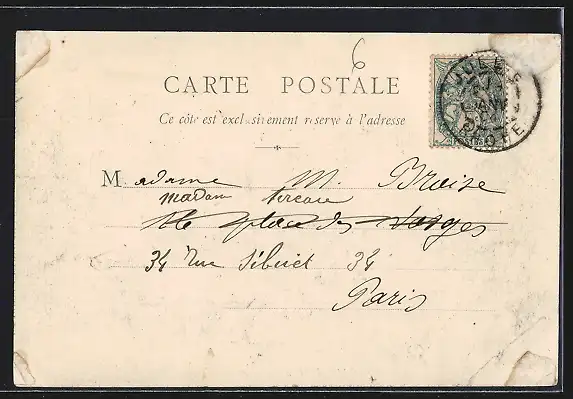 6
CARTE POSTALE
Ce côté est exclusivement réservé à l'adresse
Madame M. Braise
madam
place des Vosges
34 Rue Sibuet 34
Paris